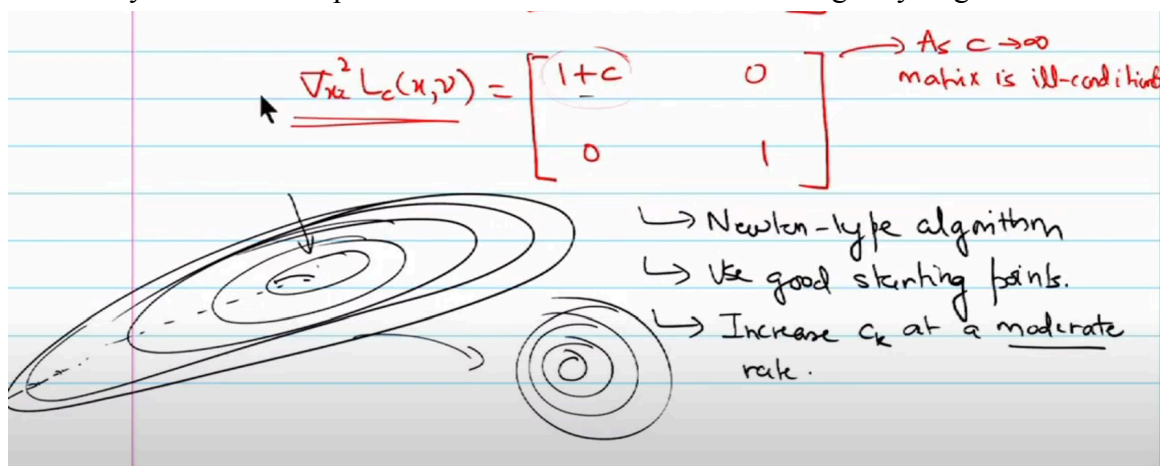 ∇²ₓₓ L_c(x,ν) = [ 1+c 0
0 1 ]
→ As c →∞
matrix is ill-conditioned
↳ Newton-type algorithm
↳ Use good starting points.
↳ Increase c_k at a moderate
rate.